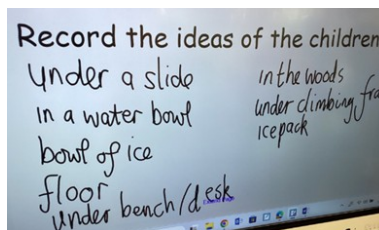 Record the ideas of the children
under a slide
in a water bowl
bowl of ice
floor
under bench/desk
in the woods
under climbing fra
icepack